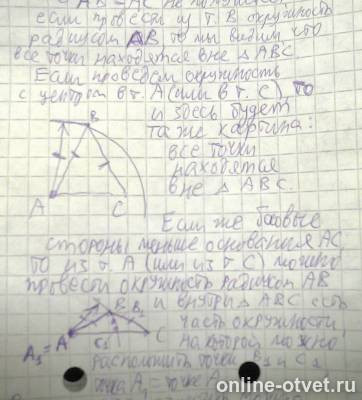 если провести из т. В окружность
радиусом АВ, то мы видим, что
все точки находятся вне △ АВС
Если проведём окружность
с центром в т. А (или в т. С), то
и здесь будет
та же картина:
все точки
находятся
вне △ АВС.
В
А
С
Если же боковые
стороны меньше основания АС,
то из т. А (или из т С) можно
провести окружность радиусом АВ
и внутри △ АВС есть
часть окружности,
на которой можно
расположить точки В₁ и С₁
точка А₁ = точке А
В
В₁
А₁ = А
С₁
С
online-otvet.ru